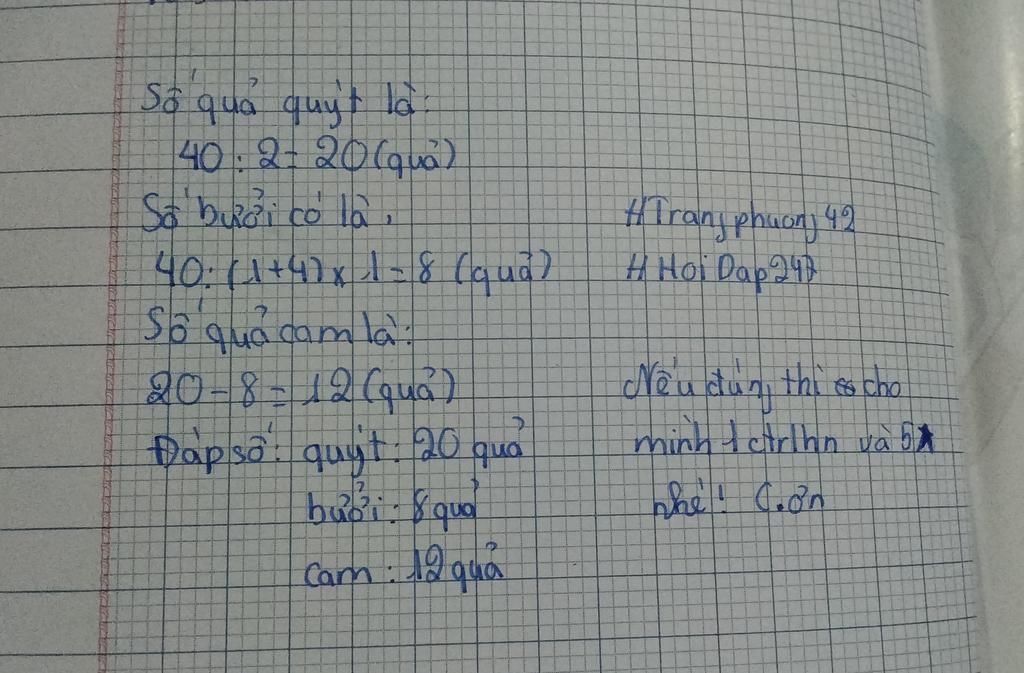 Số quả quýt là:
40 : 2 = 20 (quả)
Số bưởi có là:
40 : (1+4) x 1 = 8 (quả)
Số quả cam là:
20 - 8 = 12 (quả)
Đáp số: quýt: 20 quả
bưởi: 8 quả
cam: 12 quả
#Trangphuong42
#HoiDap247
Nếu đúng thì cho
mình 1 ctrlhn và 5*
nhé! C.ơn